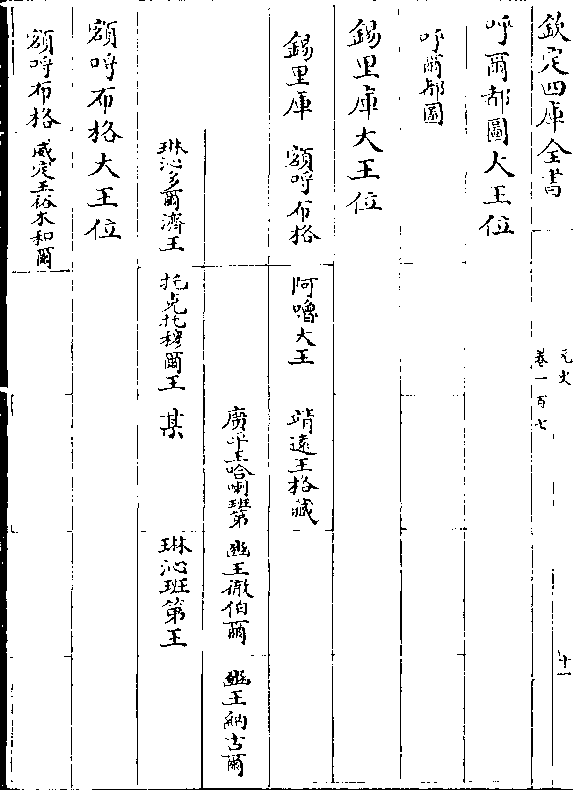 欽定四庫全書
元史
卷一百七
十一
呼爾都圖大王位
呼爾都圖
錫里庫大王位
錫里庫 額哷布格 阿嚕大王 靖遠王格藏
廣平王哈喇班第 豳王徹伯爾 豳王納古爾
琳沁多爾濟王 托克托穆爾王 某 琳沁班第王
額哷布格大王位
額哷布格 威定王裕木和爾